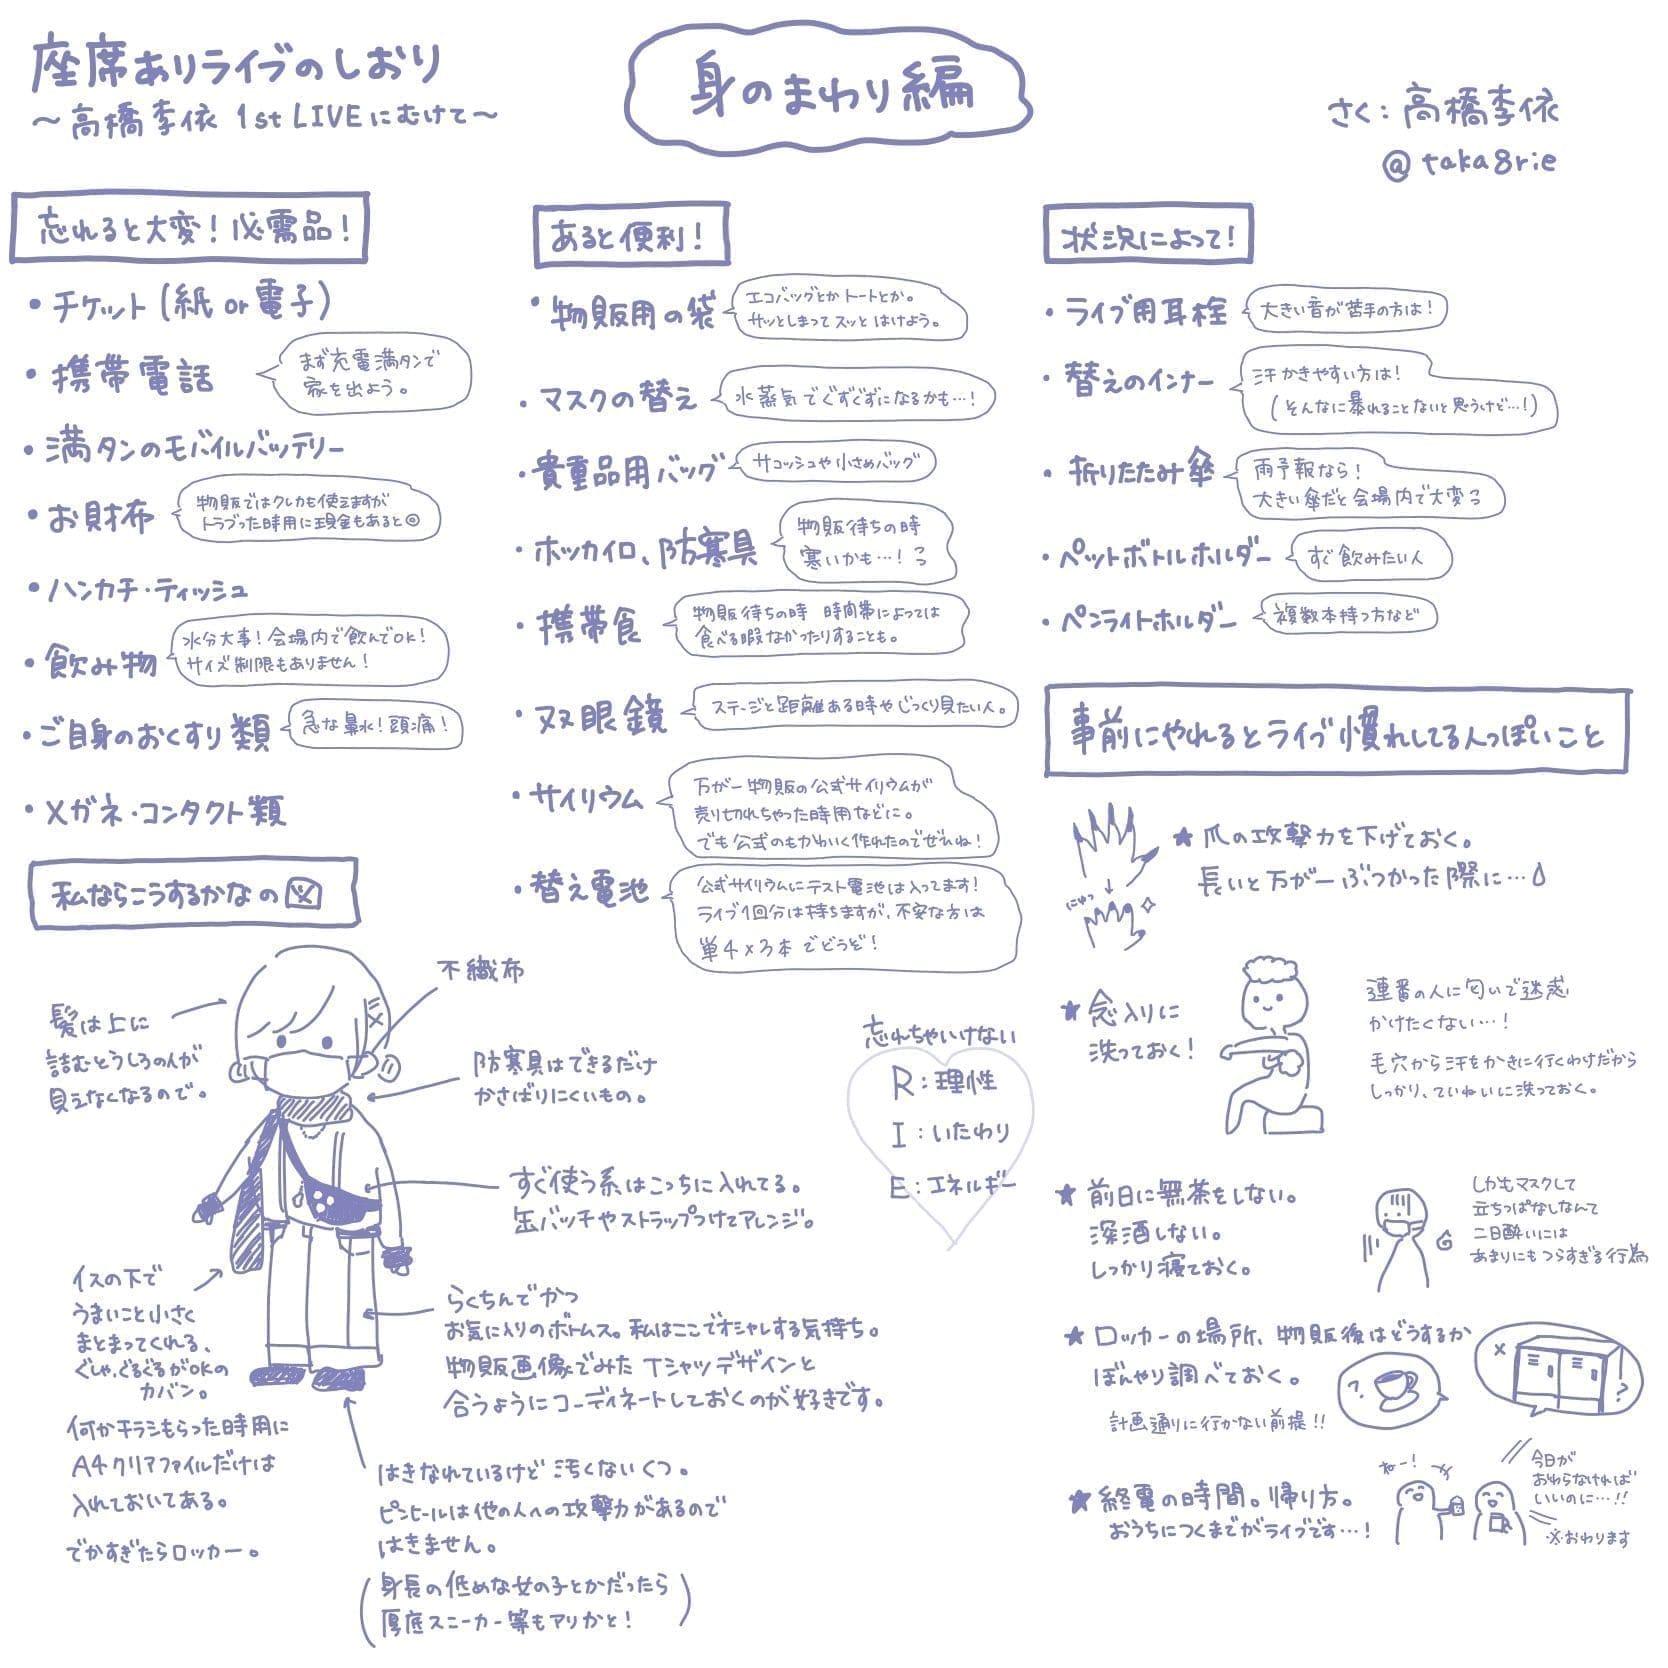 座席ありライブのしおり
〜高橋李依 1st LIVEにむけて〜
身のまわり編
さく：高橋李依
@taka8rie
忘れると大変！必需品！
・チケット(紙or電子)
・携帯電話
まず充電満タンで
家を出よう。
・満タンのモバイルバッテリー
・お財布
物販ではクレカも使えますが
トラブった時用に現金もあると◎
・ハンカチ・ティッシュ
・飲み物
水分大事！会場内で飲んでOK！
サイズ制限もありません！
・ご自身のおくすり類
急な鼻水！頭痛！
・メガネ・コンタクト類
あると便利！
・物販用の袋
エコバッグとかトートとか。
サッとしまってスッとはけよう。
・マスクの替え
水蒸気でぐずぐずになるかも…！
・貴重品用バッグ
サコッシュや小さめバッグ
・ホッカイロ、防寒具
物販待ちの時
寒いかも…！っ
・携帯食
物販待ちの時 時間帯によっては
食べる暇なかったりすることも。
・双眼鏡
ステージと距離ある時やじっくり見たい人。
・サイリウム
万が一物販の公式サイリウムが
売り切れちゃった時用などに。
でも公式のもかわいく作れたのでぜひね！
・替え電池
公式サイリウムにテスト電池は入ってます！
ライブ1回分は持ちますが、不安な方は
単4×3本でどうぞ！
状況によって！
・ライブ用耳栓
大きい音が苦手の方は！
・替えのインナー
汗かきやすい方は！
(そんなに暴れることないと思うけど…！)
・折りたたみ傘
雨予報なら！
大きい傘だと会場内で大変っ
・ペットボトルホルダー
すぐ飲みたい人
・ペンライトホルダー
複数本持つ方など
事前にやれるとライブ慣れしてる人っぽいこと
★爪の攻撃力を下げておく。
長いと万が一ぶつかった際に…
にゅっ
★念入りに
洗っておく！
連番の人に匂いで迷惑
かけたくない…！
毛穴から汗をかきに行くわけだから
しっかり、ていねいに洗っておく。
★前日に無茶をしない。
深酒しない。
しっかり寝ておく。
しかもマスクして
立ちっぱなしなんて
二日酔いには
あまりにもつらすぎる行為
★ロッカーの場所、物販後はどうするか
ぼんやり調べておく。
計画通りに行かない前提！！
?
×
?
★終電の時間。帰り方。
おうちにつくまでがライブです…！
ねー！
今日が
おわらなければ
いいのに…！！
※おわります
私ならこうするかなの図
髪は上に
詰むとうしろの人が
見えなくなるので。
不織布
防寒具はできるだけ
かさばりにくいもの。
すぐ使う系はこっちに入れてる。
缶バッチやストラップつけてアレンジ。
イスの下で
うまいこと小さく
まとまってくれる、
ぐしゃぐるぐるがOKの
カバン。
何かチラシもらった時用に
A4クリアファイルだけは
入れておいてある。
でかすぎたらロッカー。
らくちんでかつ
お気に入りのボトムス。私はここでオシャレする気持ち。
物販画像でみたTシャツデザインと
合うようにコーディネートしておくのが好きです。
はきなれているけど汚くないくつ。
ピンヒールは他の人への攻撃力があるので
はきません。
(身長の低めな女の子とかだったら
厚底スニーカー等もアリかと！)
忘れちゃいけない
R：理性
I：いたわり
E：エネルギー